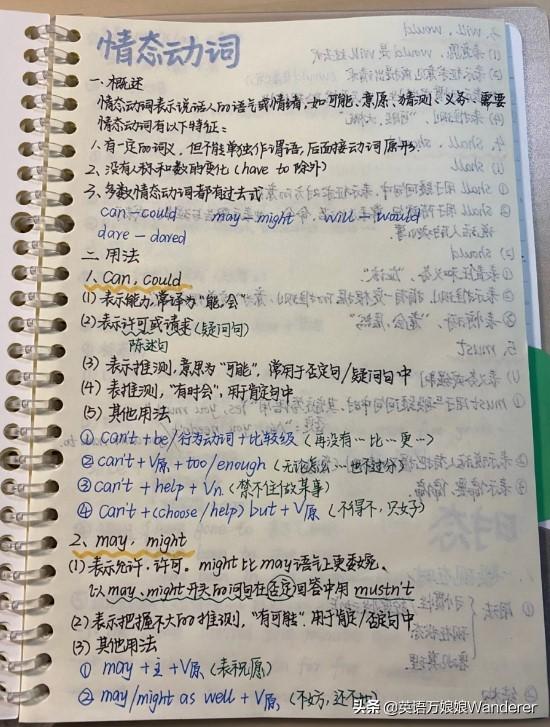 情态动词
一. 概述
情态动词表示说话人的语气或情绪，如可能、意愿、猜测、义务、需要
情态动词有以下特征：
1. 有一定的词义，但不能单独作谓语，后面接动词原形.
2、没有人称和数的变化 (have to 除外)
3、多数情态动词都有过去式
can－could may－might will－would
dare－dared
二. 用法
1. can, could
(1) 表示能力，常译为"能，会"
(2) 表示许可或请求 (疑问句)
陈述句
(3) 表示推测，意思为"可能"，常用于否定句/疑问句中
(4) 表推测，"有时会"，用于肯定句中
(5) 其他用法
① can't + be/行为动词 + 比较级 (再没有…比…更…)
② can't + V原 + too/enough (无论怎么…也不过分)
③ can't + help + Vn (禁不住做某事)
④ can't + (choose/help) but + V原 (不得不，只好)
2、may, might
(1) 表示允许，许可。might 比 may 语气上更委婉.
以 may、might 开头的问句在否定回答中用 mustn't
(2) 表示把握不大的推测，"有可能". 用于肯定/否定句中
(3) 其他用法
① may + 主 + V原 (表祝愿)
② may/might as well + V原 (不妨，还不如)
头条 @英语万娘娘Wanderer